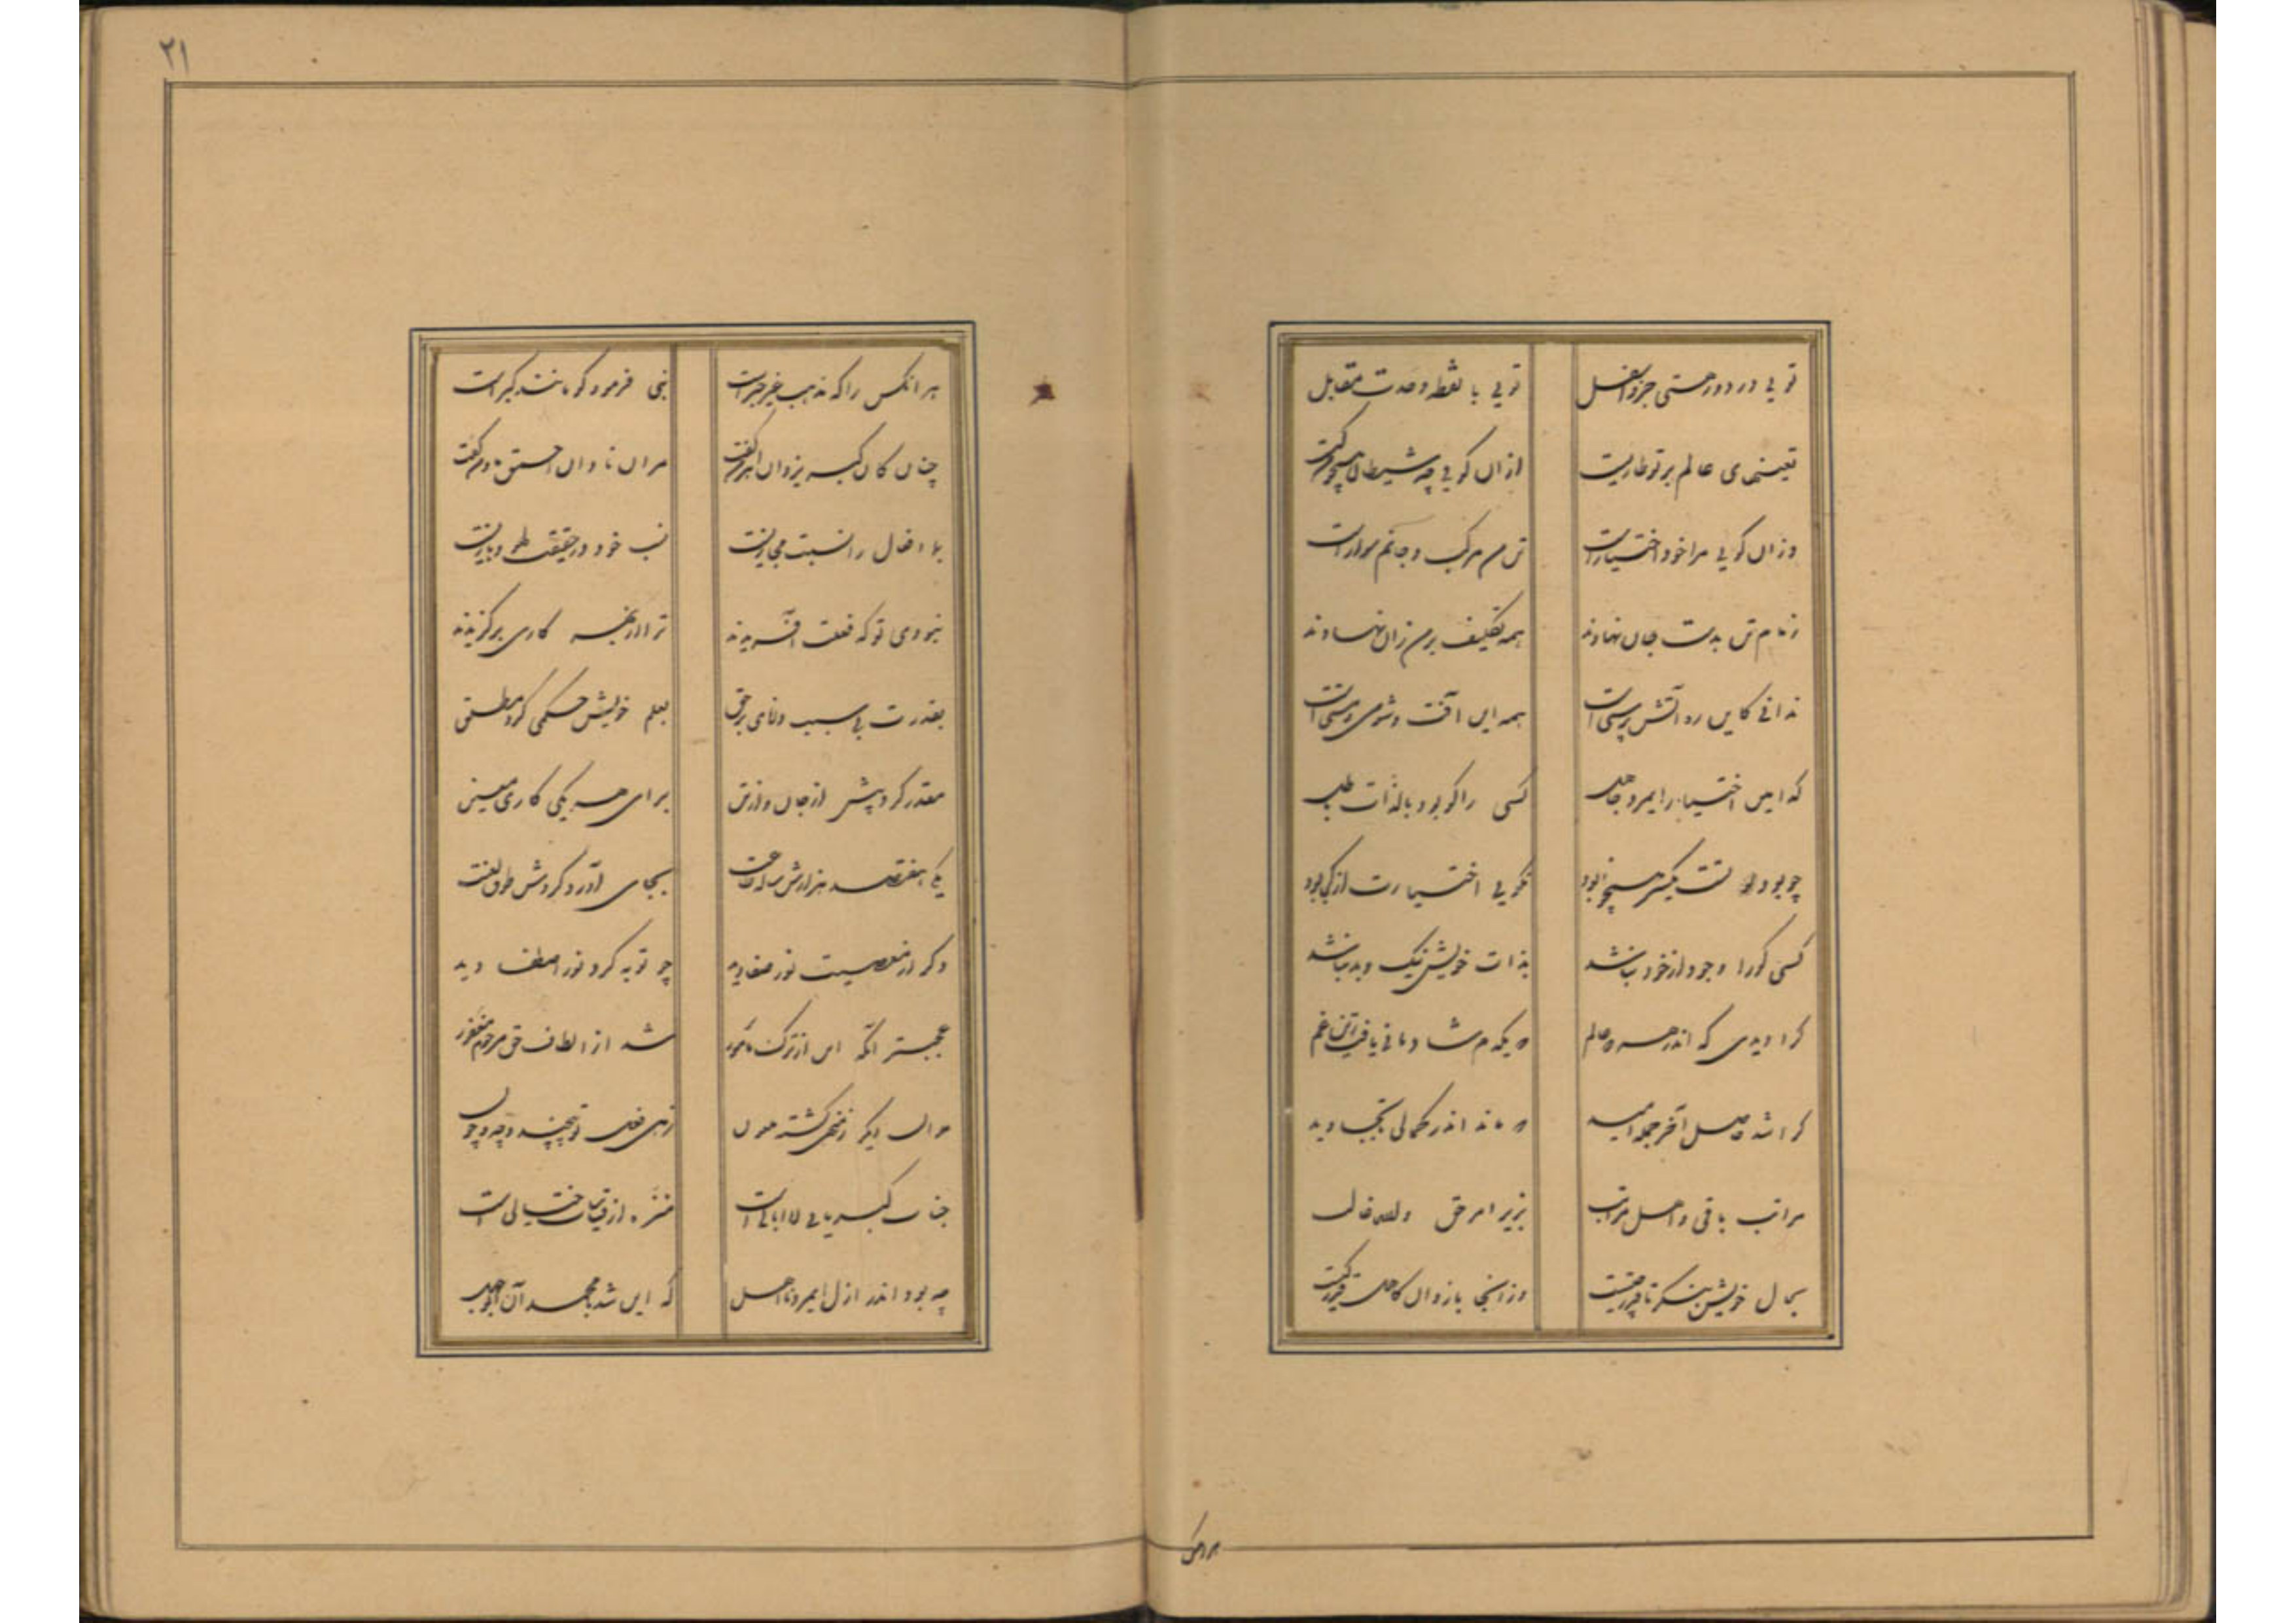 تویی در دور هستی جزو اسفل	تویی با نقطه وحدت مقابل
تعینهای عالم بر تو طاریست	از آن گویی چو شیطان همچو من کیست
وزان گویی مرا خود اختیار است	تن من مرکب و جانم سوار است
زمام تن بدست جان نهادند	همه تکلیف بر من زان نهادند
ندانی کاین ره آتش پرستی است	همه این آفت و شومی ز هستی است
کدامین اختیار ای مرد جاهل	کسی را کو بود بالذات باطل
چو بود تست یکسر همچو نابود	نگویی اختیارت از کجا بود
کسی کورا وجود از خود نباشد	بذات خویش نیک و بد نباشد
کرا دیدی که اندر هر دو عالم	که یکدم شادمانی یافت بی غم
کرا شد حاصل آخر جمله امید	که ماند اندر کمالی تا بجاوید
مراتب باقی و اهل مراتب	بزیر امر حق والله غالب
بحال خویشتن بنگر تا قدر چیست	وز آنجا باز دان کاهل قدر کیست
هر انکس
۲۱
هر انکس را که مذهب غیر جبر است	نبی فرمود کو مانند گبر است
چنان کان گبر یزدان اهرمن گفت	مر این نادان احمق ما و من گفت
بما افعال را نسبت مجازیست	نسب خود در حقیقت لهو و بازیست
نبودی تو که فعلت آفریدند	ترا از بهر کاری برگزیدند
بقدرت بی سبب دانای بر حق	بعلم خویش حکمی کرد مطلق
مقدر کرد پیش از جان و از تن	برای هر یکی کاری معین
یکی هفتصد هزاران ساله طاعت	بجای آورد و کردش طوق لعنت
دگر از معصیت نور صفا دید	چو توبه کرد نور اصطفا دید
عجبتر آنکه این از ترک مأمور	شد از الطاف حق مرحوم و مغفور
مر آن دیگر ز منهی گشته ملعون	زهی فعل تو بیچند و چه و چون
جناب کبریایی لاابالی است	منزه از قیاسات خیالی است
چه بود اندر ازل ای مرد نااهل	که این شد محمد آن ابوجهل